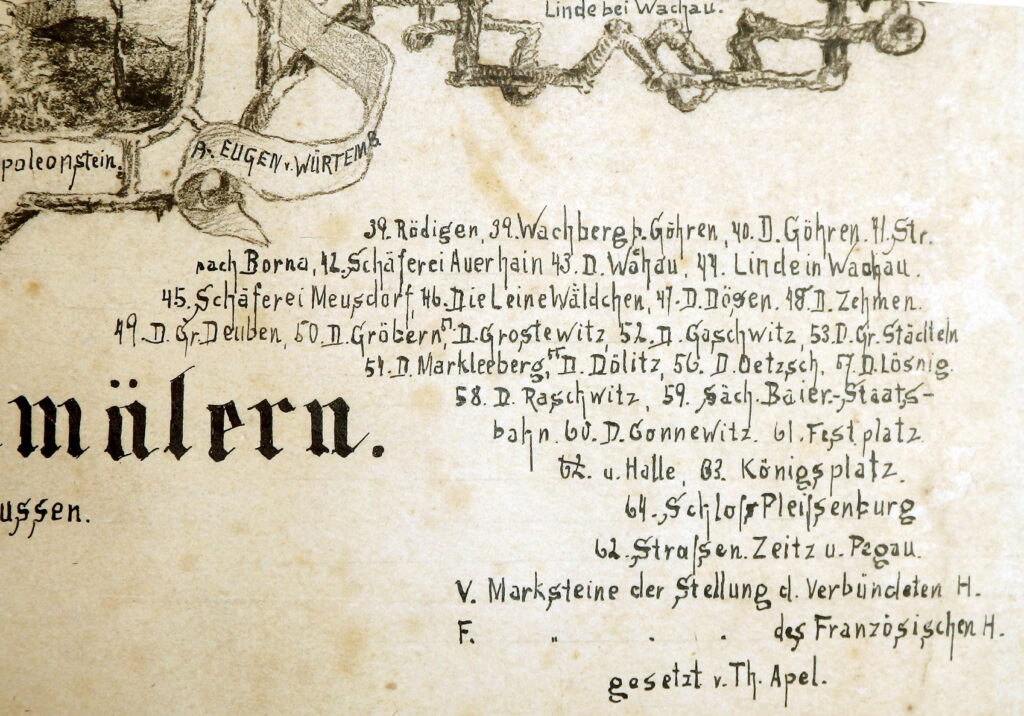 Linde bei Wachau.
poleonstein.
A. EUGEN v. WÜRTEMB.
39. Rödigen, 39. Wachberg b. Göhren, 40. D. Göhren. 41. Str.
nach Borna, 42. Schäferei Auerhain 43. D. Wachau, 44. Linde in Wachau.
45. Schäferei Meusdorf, 46. Die Leine Wäldchen, 47. D. Dösen. 48. D. Zehmen.
49. D. Gr. Deuben, 50. D. Gröbern, 51. D. Grostewitz, 52. D. Gaschwitz, 53. D. Gr. Städteln
54. D. Markleeberg, 55. D. Dölitz, 56. D. Oetzsch, 57. D. Lösnig.
58. D. Raschwitz, 59. Säch. Baier.-Staats-
bahn. 60. D. Connewitz. 61. Festplatz
mälern.
62. u. Halle, 63. Königsplatz.
64. Schloss Pleissenburg
ussen.
62. Strassen. Zeitz u. Pegau.
V. Marksteine der Stellung d. Verbündeten H.
F. " " " des Französischen H.
gesetzt v. Th. Apel.